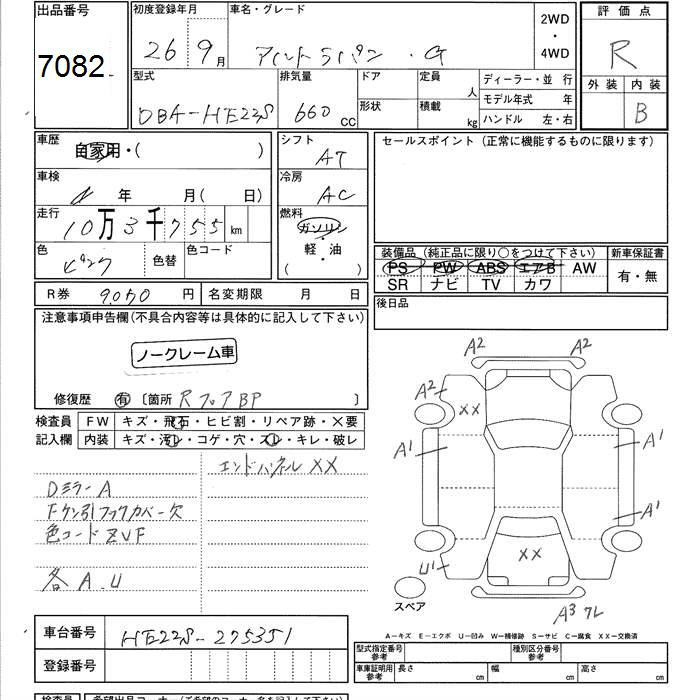 出品番号 7082
初度登録年月 26 9月
車名・グレード アルトラパン ・ G
2WD・4WD
評価点 R
外装 内装 B
型式 DBA-HE22S
排気量 660 cc
ドア 形状
定員 人 積載 kg
ディーラー・並行
モデル年式 年
ハンドル 左・右
車歴 自家用・( )
シフト AT
セールスポイント (正常に機能するものに限ります)
車検 年 月( 日)
冷房 AC
走行 10万3千755km
燃料 ガソリン・軽・油 ( )
色 ピンク 色替 色コード
装備品 (純正品に限り○をつけて下さい) 新車保証書
PS PW ABS エアB AW 有・無
SR ナビ TV カワ
R券 9050 円 名変期限 月 日
後日品
注意事項申告欄(不具合内容等は具体的に記入して下さい)
ノークレーム車
修復歴 有 〔箇所 RフロアBP 〕
検査員記入欄
FW キズ・飛石・ヒビ割・リペア跡・×要
内装 キズ・汚レ・コゲ・穴・スレ・キレ・破レ
エンドパネルXX
DミラーA
Fケン引フックカバー欠
色コードZVF
各A.U
A2 A2
A2 XX A2
A1 A1
A1 A1
U1 XX
スペア
A3 ワレ
A－キズ E－エクボ U－凹み W－補修跡 S－サビ C－腐食 XX－交換済
車台番号 HE22S-275351
登録番号
型式指定番号 参考 種別区分番号 参考
車庫証明用 参考 長さ cm 幅 cm 高さ cm
検査員 希望出品コーナー (ご希望のコーナー名を記入下さい)